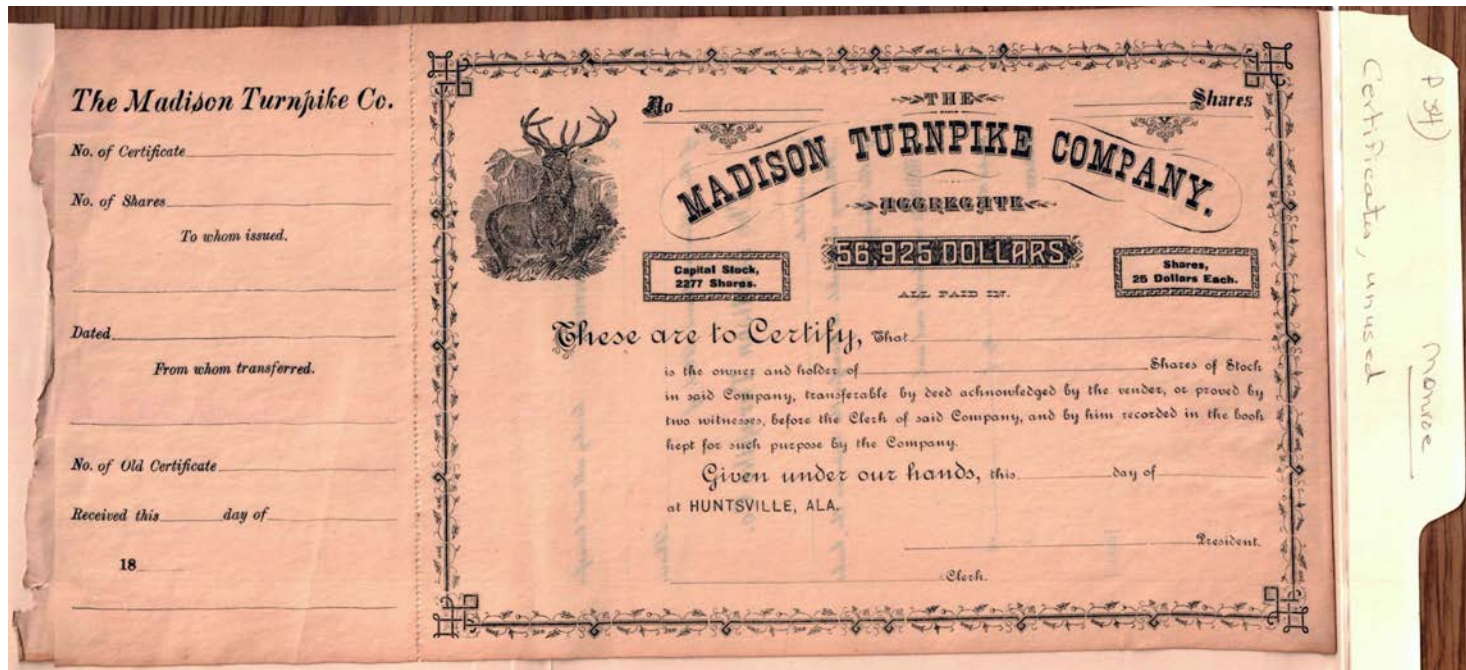 The Madison Turnpike Co.
No. of Certificate
No. of Shares
To whom issued.
Dated
From whom transferred.
No. of Old Certificate
Received this day of
18
No Shares
THE
MADISON TURNPIKE COMPANY.
AGGREGATE
56,925 DOLLARS
ALL PAID IN.
Capital Stock,
2277 Shares.
Shares,
25 Dollars Each.
These are to Certify, That
is the owner and holder of Shares of Stock
in said Company, transferable by deed acknowledged by the vender, or proved by
two witnesses, before the Clerk of said Company, and by him recorded in the book
kept for such purpose by the Company.
Given under our hands, this day of
at HUNTSVILLE, ALA.
President.
Clerk.
P 34)
Certificates, unused
Monroe